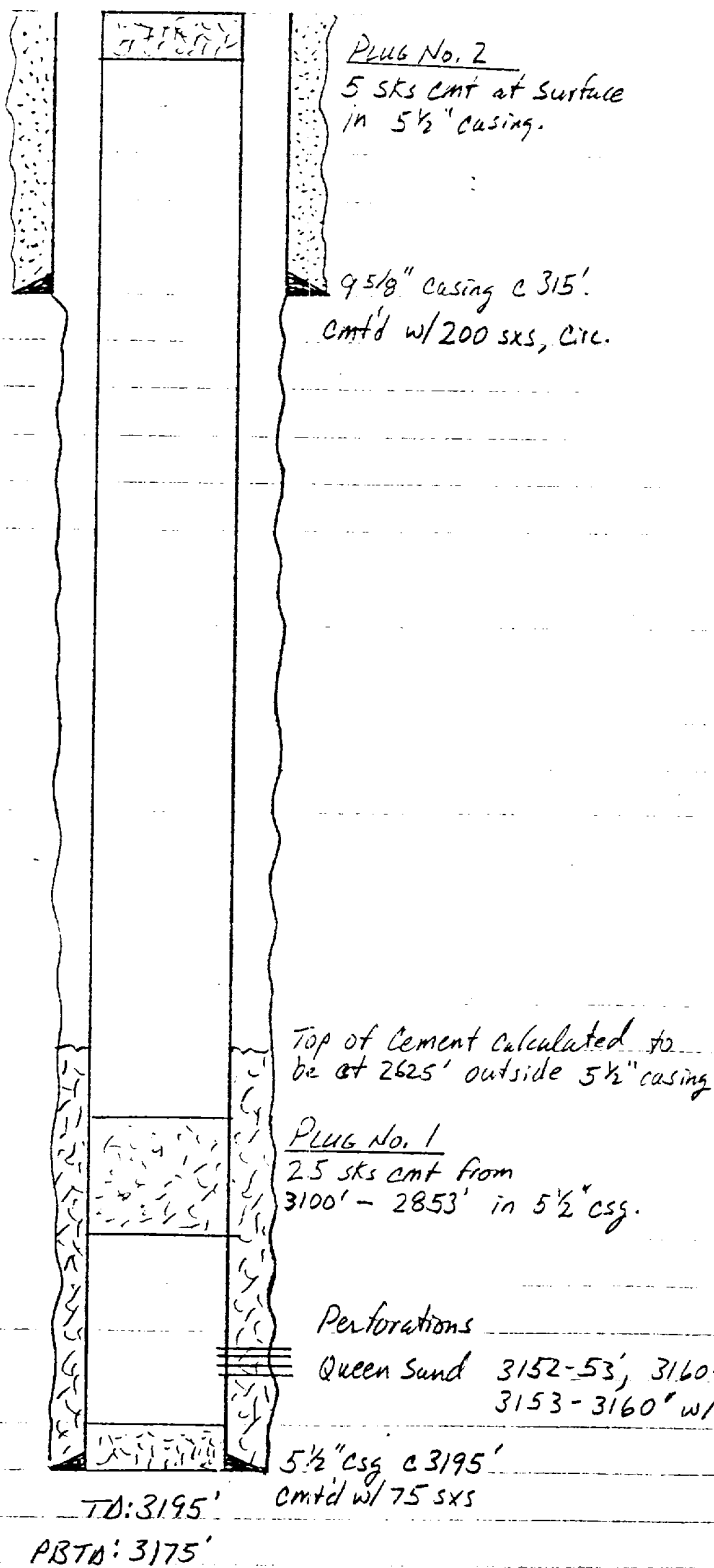 PLUG No. 2
5 sks cmt at surface
in 5½" casing.
9 5/8" casing c 315'.
cmt'd w/200 sxs, circ.
Top of Cement calculated to
be at 2625' outside 5½" casing
PLUG No. 1
25 sks cmt from
3100' - 2853' in 5½" csg.
Perforations
Queen Sand 3152-53', 3160-
3153-3160' w/
5½" csg c 3195'
cmt'd w/ 75 sxs
TD: 3195'
PBTD: 3175'